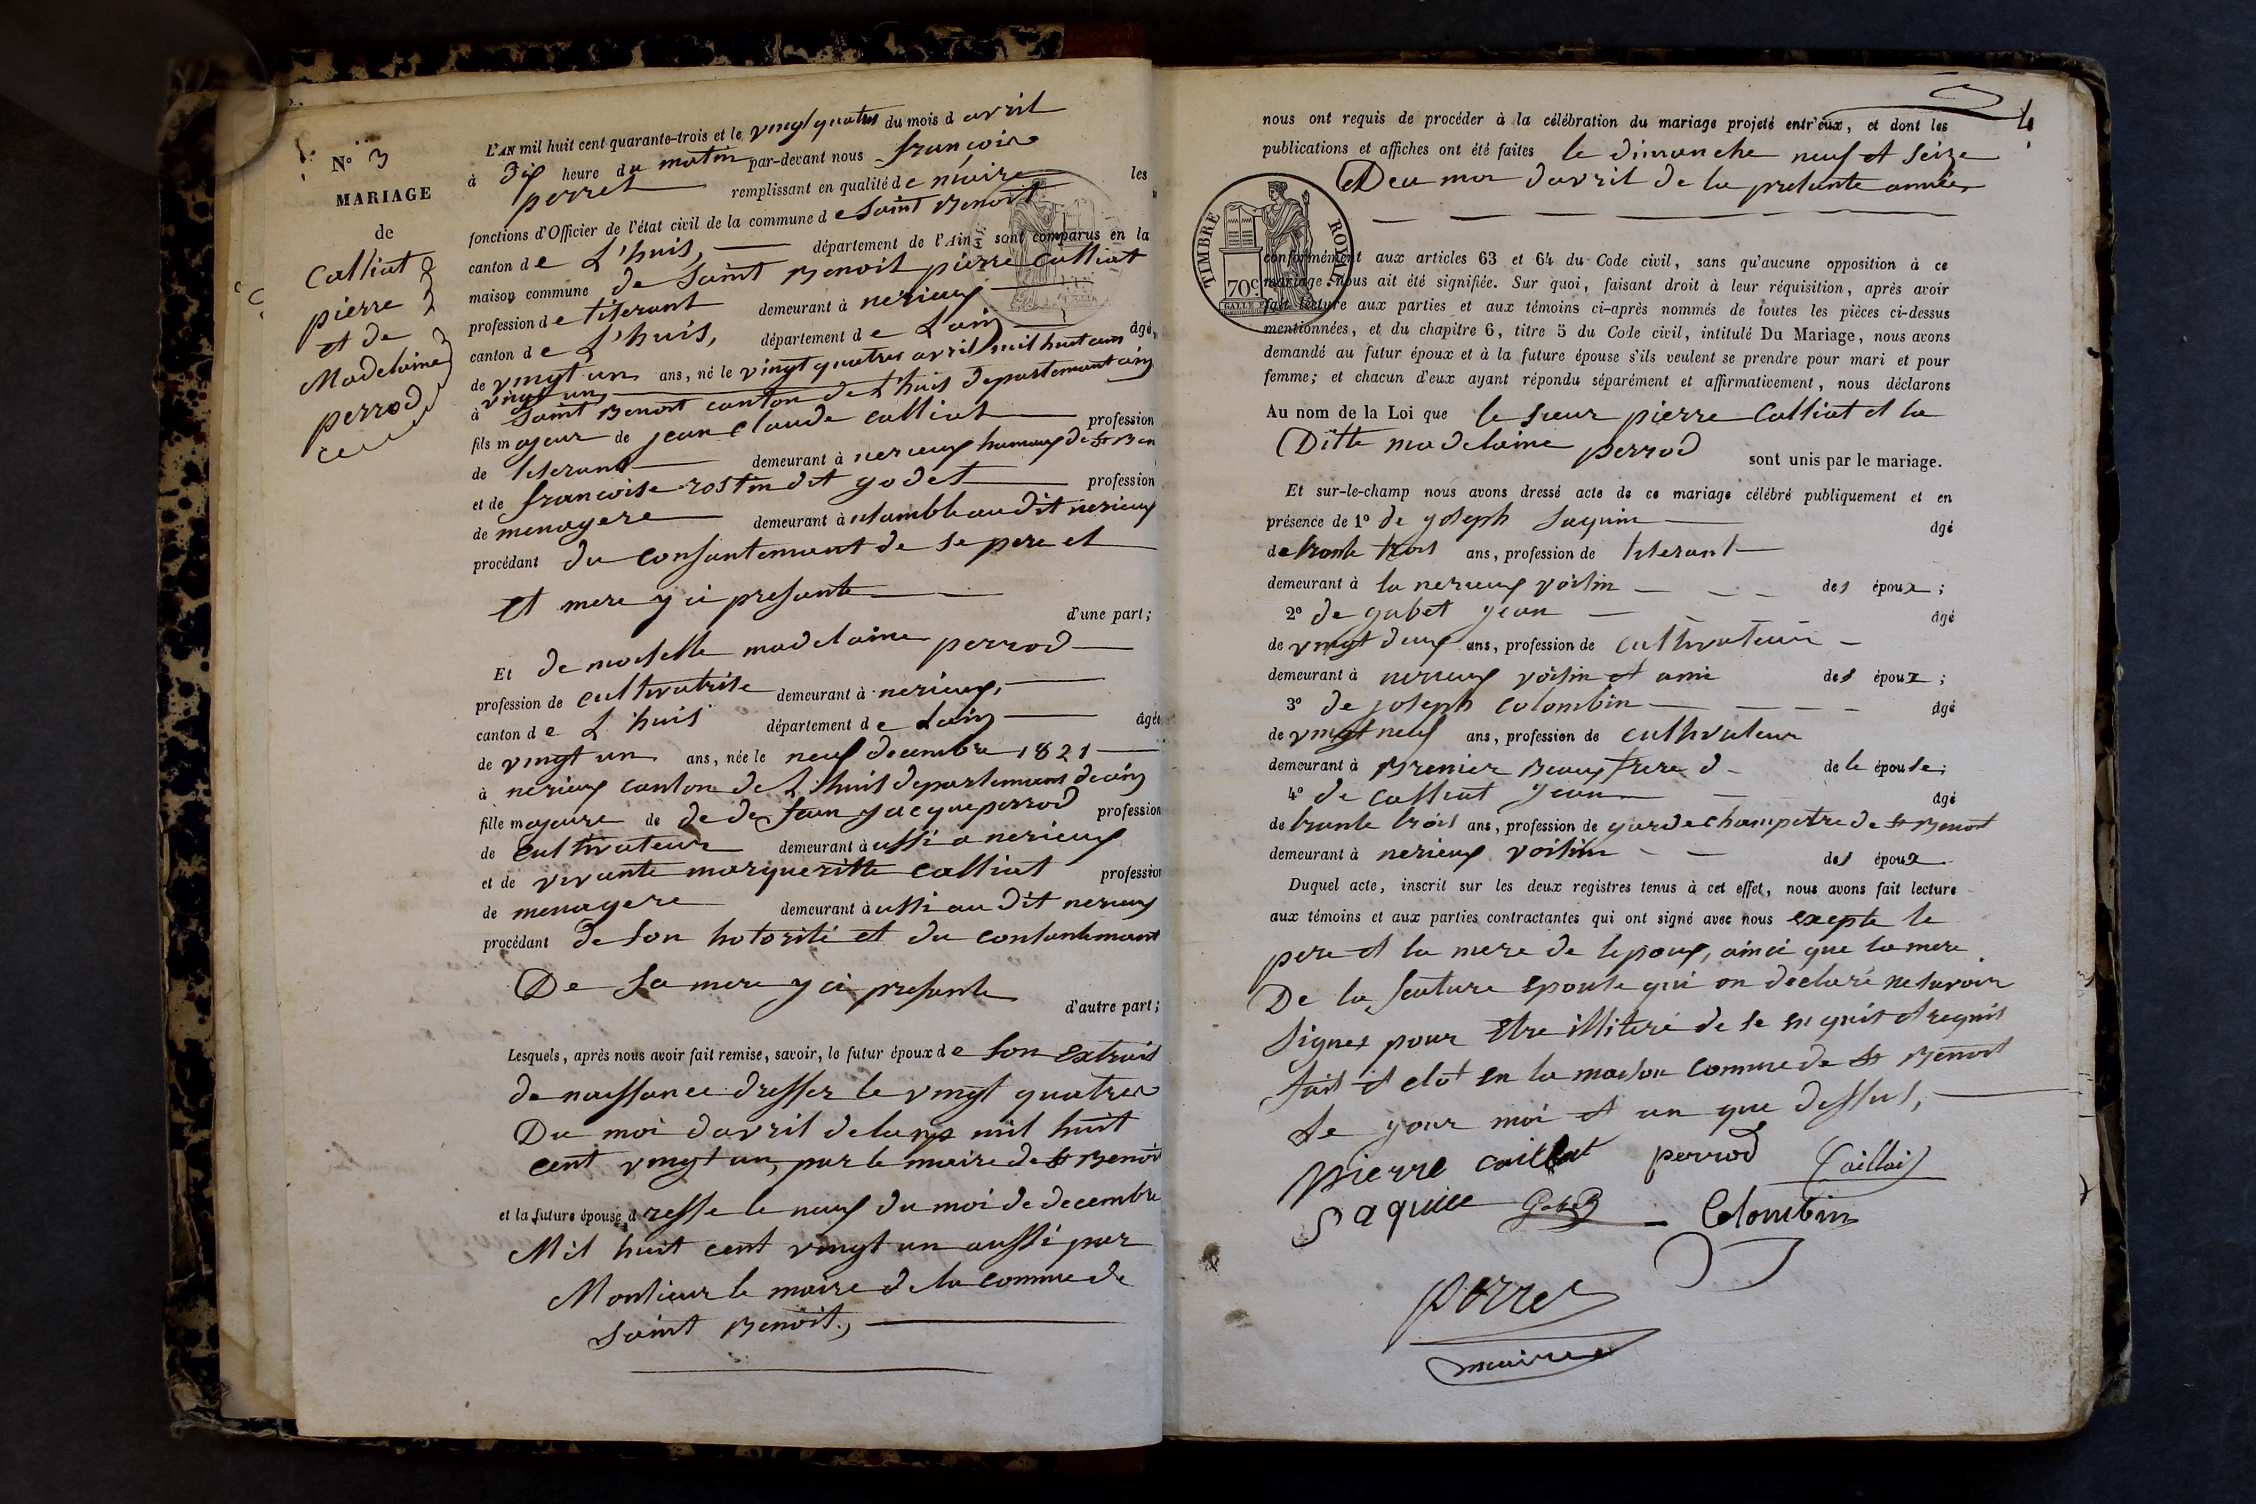 N° 3
MARIAGE
de
Calliat
pierre
et de
Madelaine
perrod
L'AN mil huit cent quarante-trois et le vingt quatre du mois d avril
à Dix heure du matin par-devant nous françois
perret remplissant en qualité de maire les
fonctions d'Officier de l'état civil de la commune de Saint Benoit
canton de L'huis, département de l'Ain sont comparus en la
maison commune de Saint Benoit pierre Calliat
profession de tiserant demeurant à nerieux
canton de L'huis, département de Lain âgé
de vingt un ans, né le vingt quatre avril mil huit cent
vingt un
à Saint Benoit canton de L'huis departemant ain
fils majeur de jean Claude calliat profession
de tiserand demeurant à nerieux hamaux de St Ben
et de francoise rostin dit godet profession
de menagere demeurant à ensamble au dit nerieux
procédant du consantemant de se pere et
et mere y ci presante
d'une part;
Et demoiselle madelaine perrod
profession de cultivatrise demeurant à nerieux,
canton de L'huis département de Lain âgée
de vingt un ans, née le neuf decembre 1821
à nerieux canton de L'huis departement de ain
fille majeure de de de feu Jacque perrod profession
de cultivateur demeurant à ussi a nerieux
et de vivante margueritte calliat profession
de menagere demeurant à ussi au dit nerieux
procédant de son hotorité et du consantemant
De sa mere y ci presante
d'autre part;
Lesquels, après nous avoir fait remise, savoir, le futur époux de son extrait
de naissance dresser le vingt quatre
Du moi d'avril de lans mil huit
cent vingt un, par le maire de St Benoit
et la future épouse dresse le neuf du moi de decembre
Mil huit cent vingt un aussi par
Monsieur le maire de la commue de
Saint Benoit,
4
nous ont requis de procéder à la célébration du mariage projeté entr'eux, et dont les
publications et affiches ont été faites le dimanche neuf et seize
Deu moi d'avril de la presante année
TIMBRE ROYAL
70c.
conformément aux articles 63 et 64 du Code civil, sans qu'aucune opposition à ce
mariage nous ait été signifiée. Sur quoi, faisant droit à leur réquisition, après avoir
fait lecture aux parties et aux témoins ci-après nommés de toutes les pièces ci-dessus
mentionnées, et du chapitre 6, titre 5 du Code civil, intitulé Du Mariage, nous avons
demandé au futur époux et à la future épouse s'ils veulent se prendre pour mari et pour
femme; et chacun d'eux ayant répondu séparément et affirmativement, nous déclarons
Au nom de la Loi que le sieur pierre Calliat et la
Ditte madelaine perrod sont unis par le mariage.
Et sur-le-champ nous avons dressé acte de ce mariage célébré publiquement et en
présence de 1° de joseph Saquin âgé
de trante trois ans, profession de tiserant
demeurant à la nerieux voisin des époux;
2° de gabet jean âgé
de vingt deux ans, profession de cultivateur
demeurant à nerieux voisin et ami des époux;
3° de joseph colombin âgé
de vingt neuf ans, profession de cultivateur
demeurant à Brenier Beaux frere d de le épouse;
4° de calliat jean âgé
de trante trois ans, profession de garde champetre de St Benoit
demeurant à nerieux voisin des époux
Duquel acte, inscrit sur les deux registres tenus à cet effet, nous avons fait lecture
aux témoins et aux parties contractantes qui ont signé avec nous exepte le
pere et la mere de lepoux, ainci que la mere
De la feuture epouse qui on declaré ne savoir
signer pour etre illiteré de se enquit et requis
fait et clot en la maison commue de St Benoit
Le jour moi et an que dessus,
pierre caillat perrod Caillat
Saquin Gabet Colombin
Perret
maire